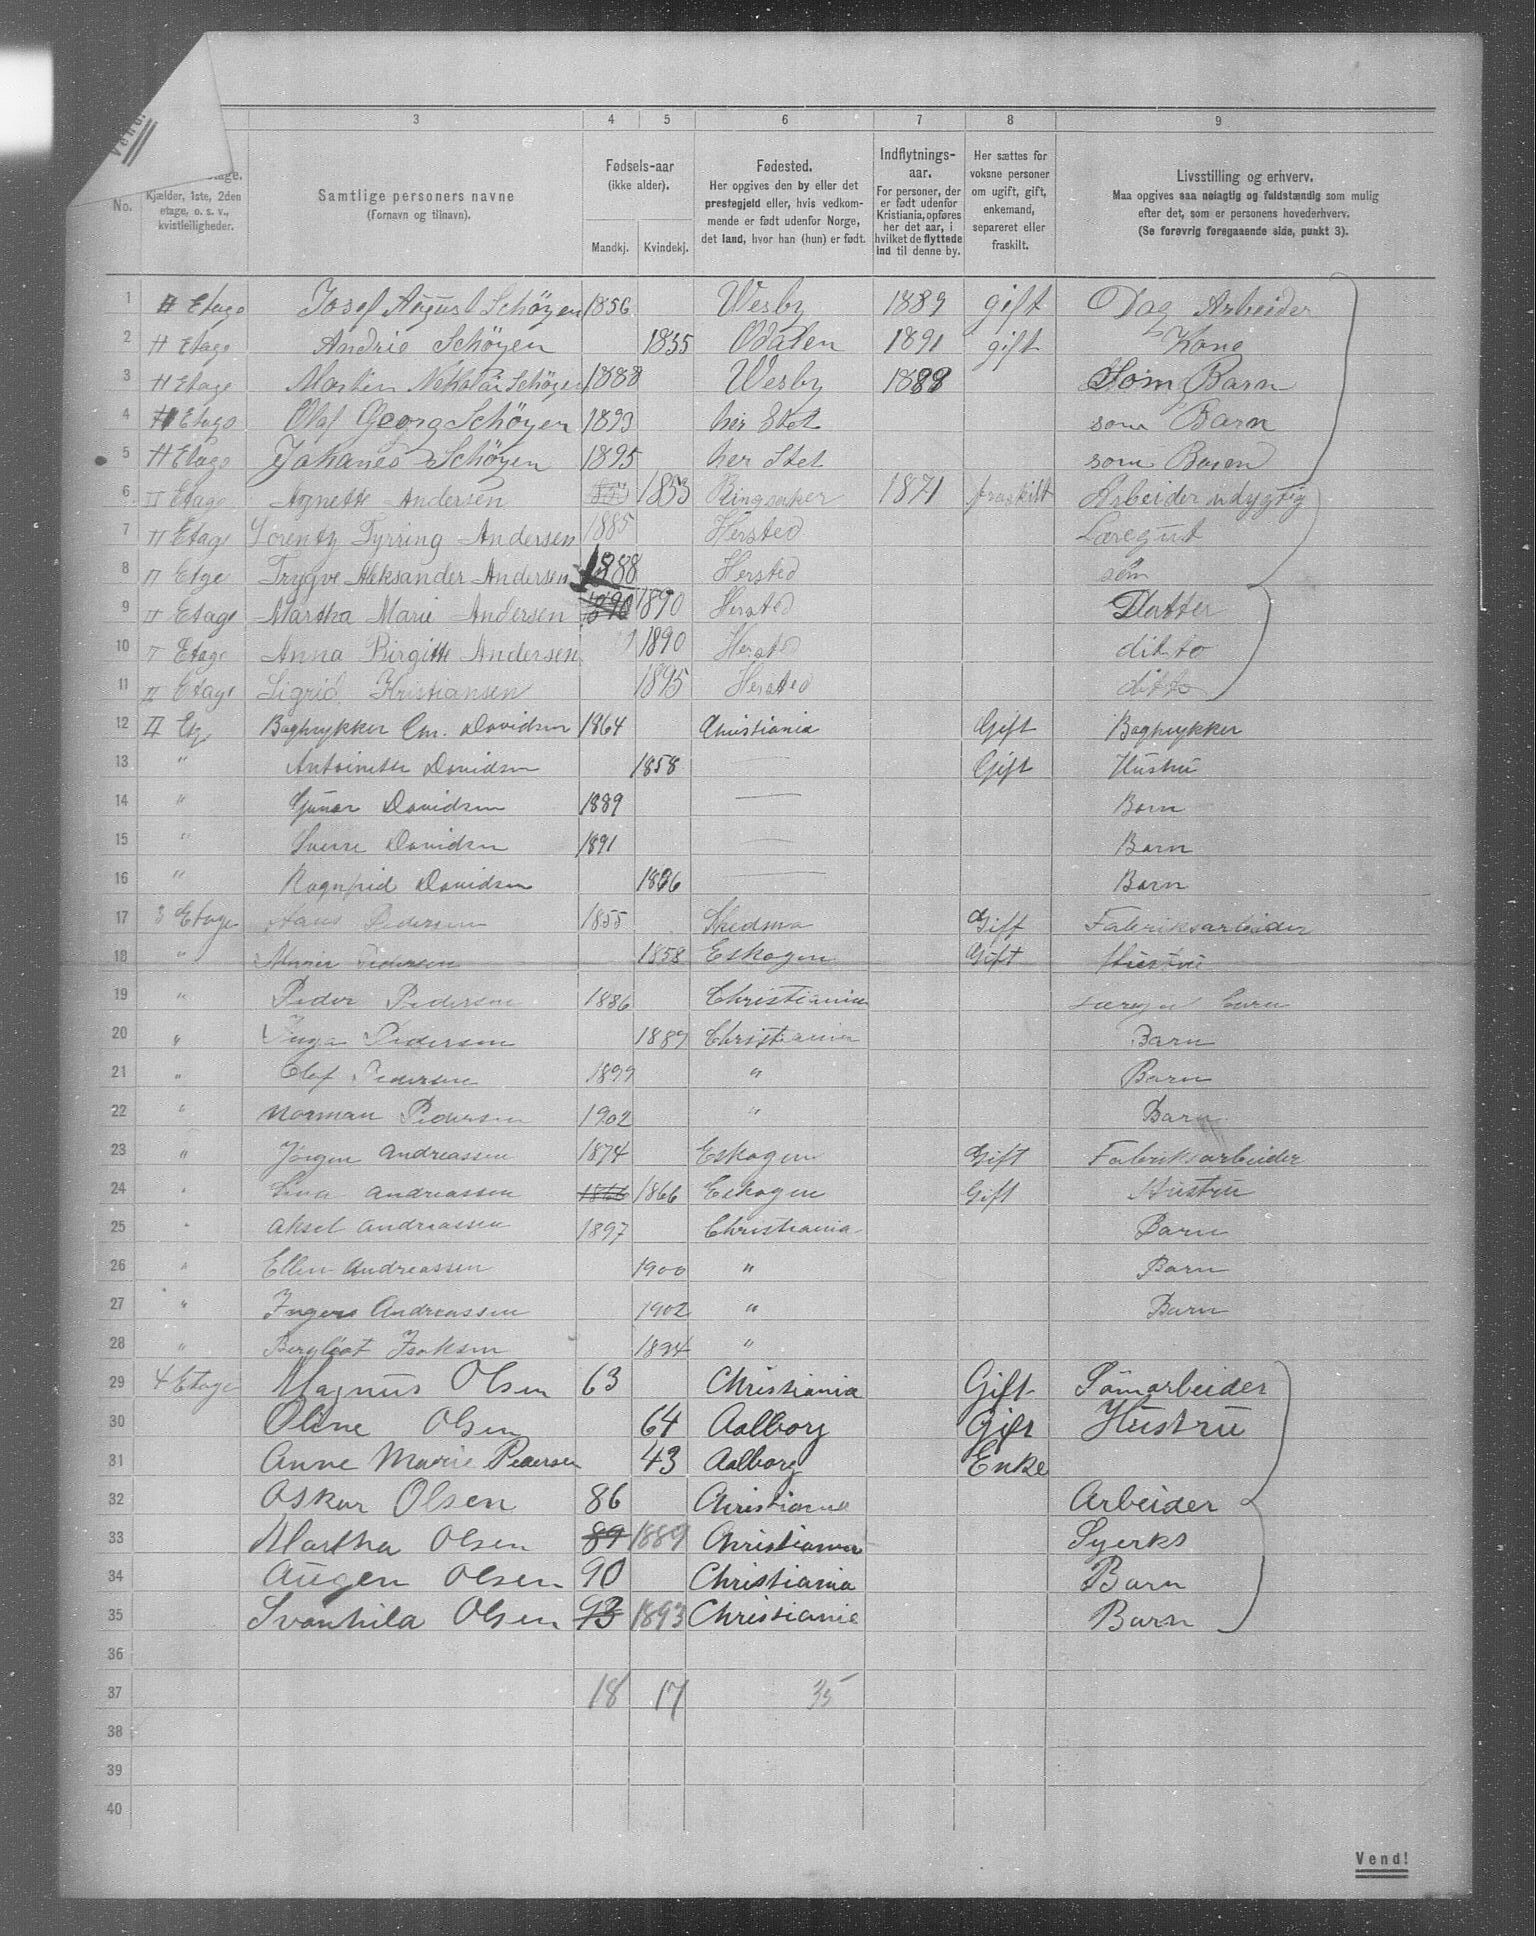 Vend!
3 4 5 6 7 8 9
No.
Kjælder, 1ste, 2den etage, o. s. v., kvistleiligheder.
Samtlige personers navne (Fornavn og tilnavn).
Fødsels-aar (ikke alder).
Mandkj. Kvindekj.
Fødested.
Her opgives den by eller det prestegjeld eller, hvis vedkommende er født udenfor Norge, det land, hvor han (hun) er født.
Indflytnings-aar.
For personer, der er født udenfor Kristiania, opføres her det aar, i hvilket de flyttede ind til denne by.
Her sættes for voksne personer om ugift, gift, enkemand, separeret eller fraskilt.
Livsstilling og erhverv.
Maa opgives saa nøiagtig og fuldstændig som mulig efter det, som er personens hovederhverv.
(Se forøvrig foregaaende side, punkt 3).
1 II Etage Josef August Schöyen 1856 Wesby 1889 gift Dag Arbeider
2 II Etage Andrie Schöyen 1835 Odalen 1891 gift Kone
3 II Etage Morten Nekolai Schöyen 1888 Wesby 1888 Som Barn
4 II Etage Olaf Georg Schöyen 1893 her Stet som Barn
5 II Etage Johanes Schöyen 1895 her Stet som Baren
6 II Etage Agnette Andersen 1853 Ringsaker 1871 fraskilt Arbeider udygtig
7 II Etage Lorentz Tyrring Andersen 1885 Hersted Læregut
8 II Etge Trygve Aleksander Andersen 1888 Hersted søn
9 II Etage Martha Marie Andersen 1890 1890 Hersted Datter
10 II Etage Anna Birgitte Andersen 1890 Hersted ditto
11 II Etage Sigrid Kristiansen 1895 Hersted ditto
12 II Etg Bogtrykker Chr. Davidsen 1864 Christiania Gift Bogtrykker
13 " Antoinette Davidsen 1858 — Gift Hustru
14 " Gunar Davidsen 1889 — Barn
15 " Sverre Davidsen 1891 — Barn
16 " Ragnfrid Davidsen 1896 — Barn
17 3 Etage Hans Pedersen 1855 Skedsmo Gift Fabriksarbeider
18 " Marie Pedersen 1858 Eskogen Gift Hustru
19 " Peder Pedersen 1886 Christiania
20 " Inga Pedersen 1889 Christiania Barn
21 " Olof Pedersen 1899 " Barn
22 " Norman Pedersen 1902 " Barn
23 " Jörgen Andreassen 1874 Eskogen Gift Fabriksarbeider
24 " Lina Andreassen 1866 1866 Eskogen Gift Hustru
25 " Aksel Andreassen 1897 Christiania Barn
26 " Ellen Andreassen 1900 " Barn
27 " Ingers Andreassen 1902 " Barn
28 " Bergliot Isaksen 1894 "
29 4 Etage Magnus Olsen 63 Christiania Gift Sömarbeider
30 Oline Olsen 64 Aalborg Gift Hustru
31 Anne Marie Pedersen 43 Aalborg Enke
32 Oskar Olsen 86 Christiania Arbeider
33 Martha Olsen 89 1889 Christiania Syerks
34 Augen Olsen 90 Christiania Barn
35 Svanhila Olsen 93 1893 Christiania Barn
36
37 18 17 35
38
39
40
Vend!